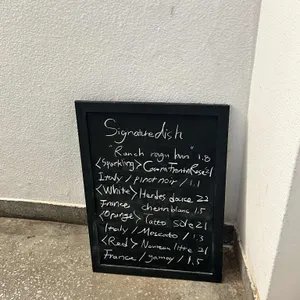 Signature dish
"Ranch ragu bun" 1.8
<Sparkling>
Italy / pinot noir / 1.1
<White> Herdes darce 22
France chenin blanc 1.5
<Orange> Tatto sole 21
Italy / Moscato / 1.3
<Red> litre 21
France / gamay / 1.5